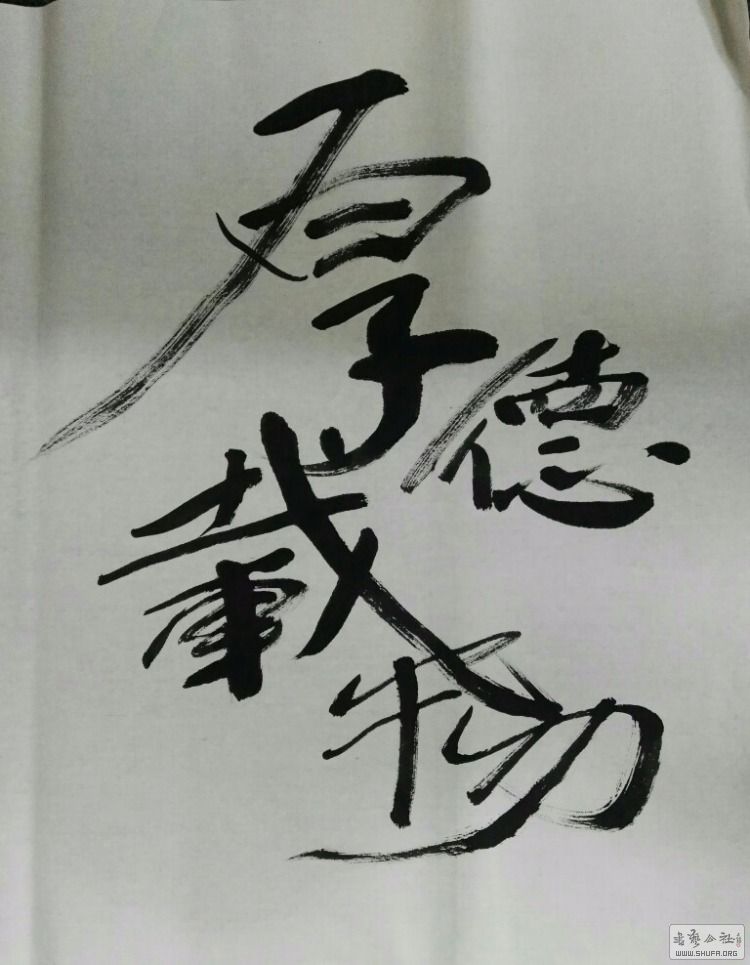 厚德
載物
书艺公社
WWW.SHUFA.ORG